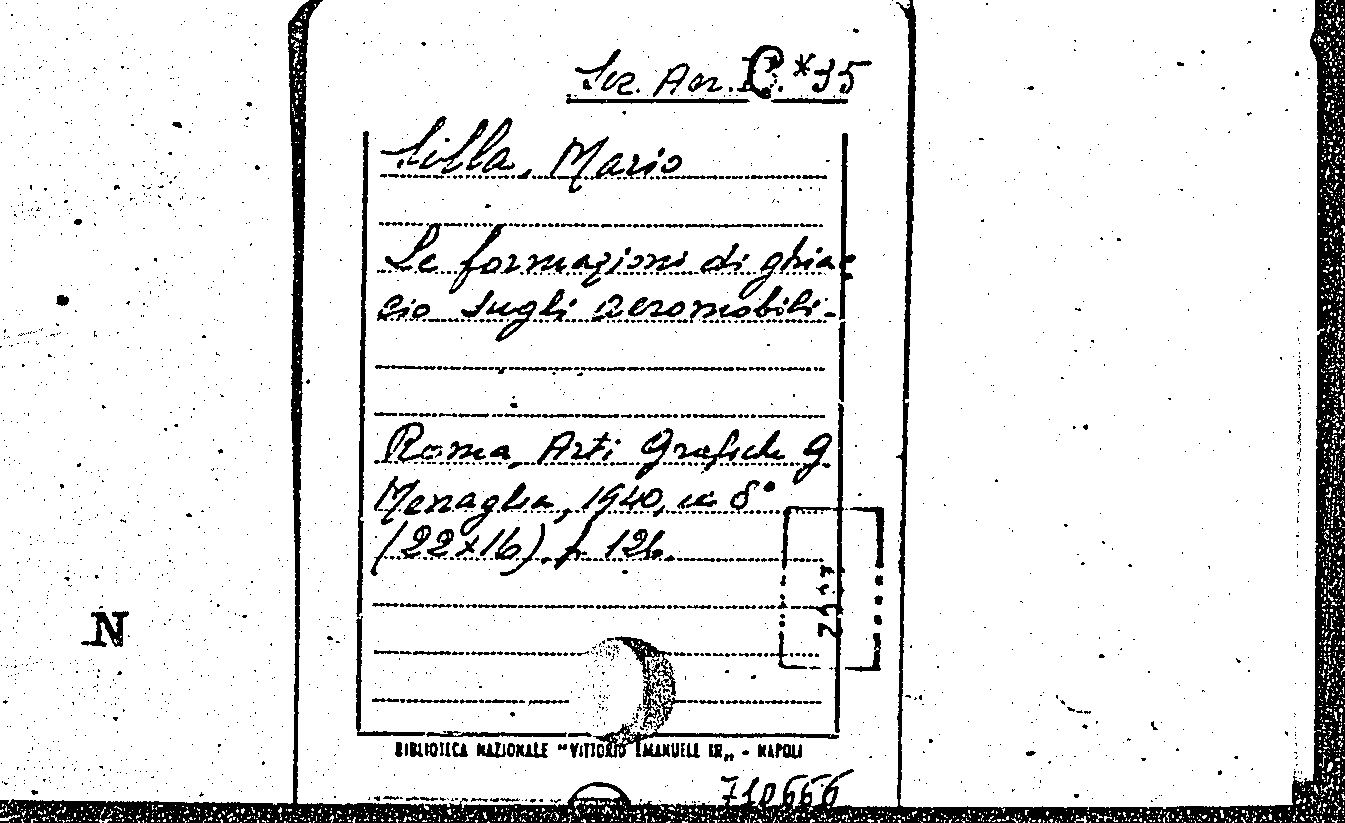 Sez. Aer. C. *35
Silla, Mario
Le formazioni di ghiac
cio sugli aeromobili.
Roma, Arti Grafiche G.
Menaglia, 1940, in 8°
(22x16), p. 126.
N
BIBLIOTECA NAZIONALE "VITTORIO EMANUELE III„ - NAPOLI
710666